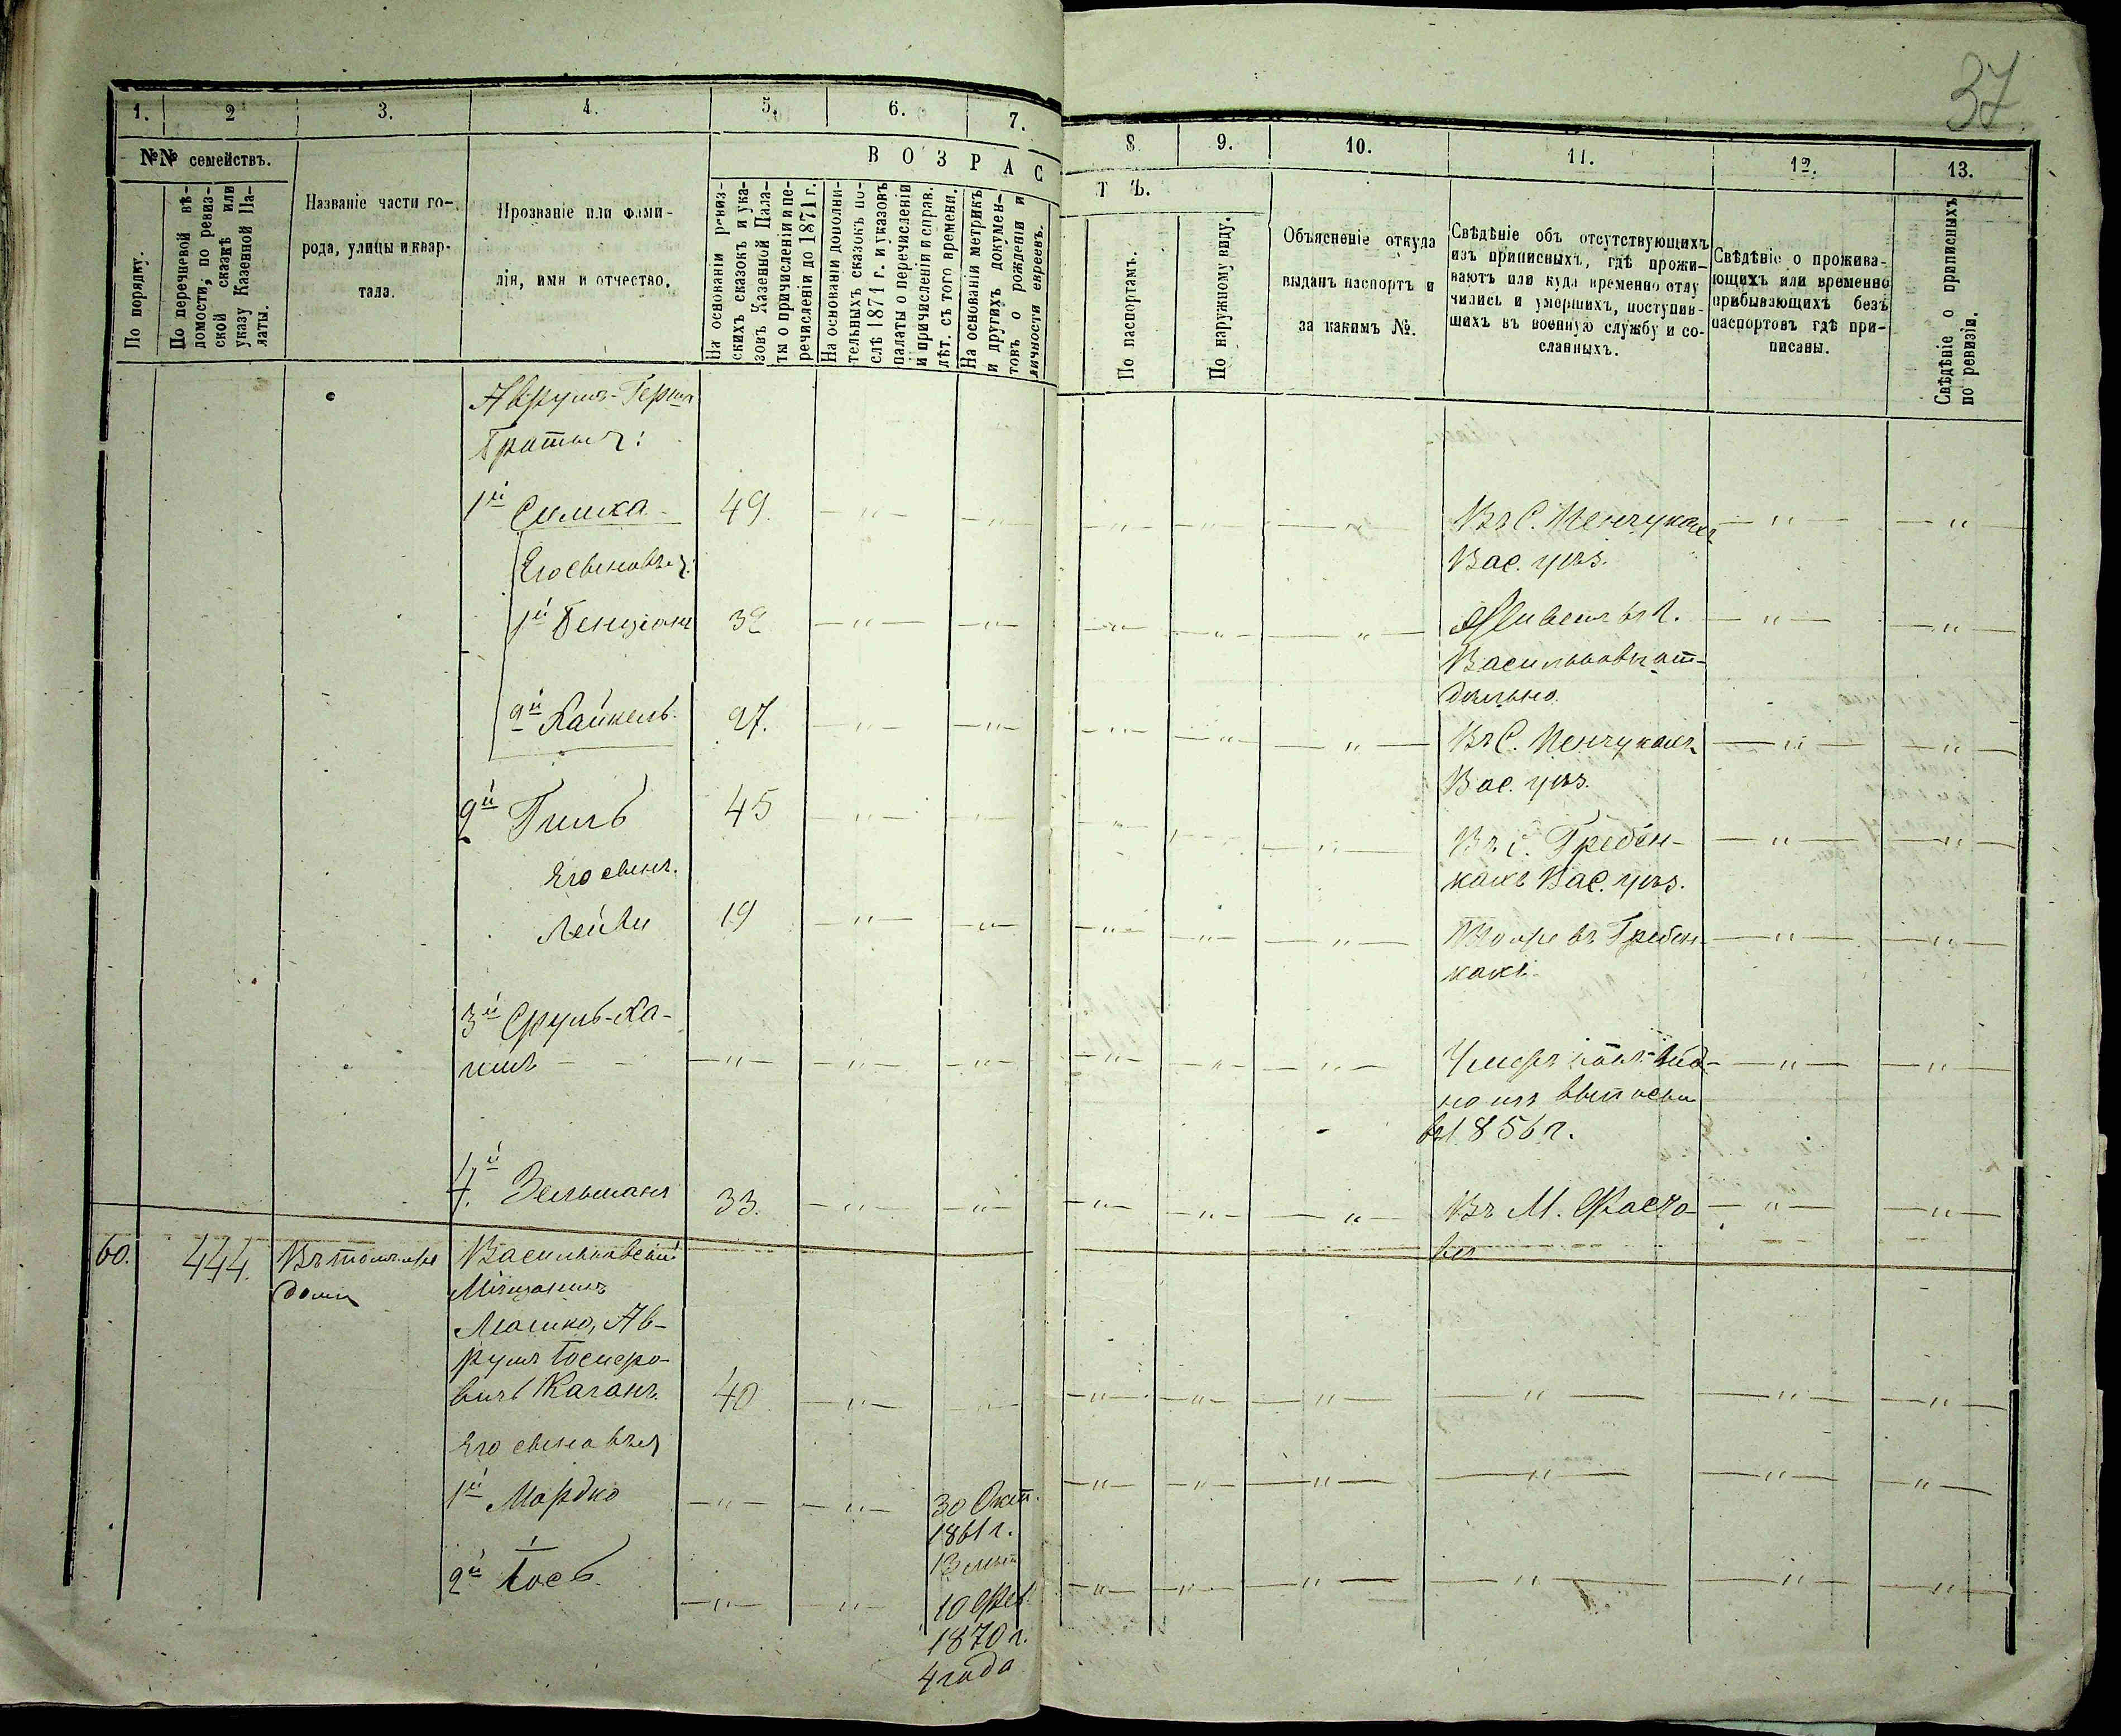 37
1. 2 3. 4. 5. 6. 7. 8 9. 10. 11. 12. 13.
№№ семействъ.
По порядку.
По перечневой вѣ-
домости, по ревиз-
ской сказкѣ или
указу Казенной Па-
латы.
Названіе части го-
рода, улицы и квар-
тала.
Прозваніе или фами-
лія, имя и отчество.
ВОЗРАСТЪ.
На основаніи ревиз-
скихъ сказокъ и ука-
зовъ Казенной Пала-
ты о причисленіи и пе-
речисленіи до 1871 г.
На основаніи дополни-
тельныхъ сказокъ по-
слѣ 1871 г. и указовъ
палаты о перечисленіи
и причисленіи и справ.
лѣт. съ того времени.
На основаніи метрикъ
и другихъ докумен-
товъ о рожденіи и
личности евреевъ.
По паспортамъ.
По наружному виду.
Объясненіе откуда
выданъ паспортъ и
за какимъ №.
Свѣдѣніе объ отсутствующихъ
изъ приписныхъ, гдѣ прожи-
ваютъ или куда временно отлу
чились и умершихъ, поступив-
шихъ въ военную службу и со-
сланныхъ.
Свѣдѣніе о прожива-
ющихъ или временно
прибывающихъ безъ
паспортовъ гдѣ при-
писаны.
Свѣдѣніе о приписныхъ
по ревизіи.
Аврумъ-Герш
Братья:
1й Симха 49. Въ С. Пенчукахъ
Его сыновья: Вас. уѣз.
1й Бенціонъ 32 Живетъ въ г.
Васильковѣ от-
дѣльно.
2й Хайкель. 27. Въ С. Пенчукахъ
Вас. уѣз.
2й Гиль 45 Въ с. Гребен-
Его сынъ. кахъ Вас. уѣз.
Лейви 19 Тоже въ Гребен-
кахъ.
3й Сруль-Ха-
имъ Умеръ какъ вид-
но изъ выписки
въ 1856 г.
4й Зельманъ 33. Въ М. Фасто-
вѣ
60. 444. Въ томъ же Васильковскій
домѣ Мѣщанинъ
Мошко, Ав-
румъ Іосиєро-
вичъ Каганъ. 40
Его сыновья
1й Мордко 30 Окт.
1861 г.
13 лѣт
2й Іось. 10 Фев.
1870 г.
4 года